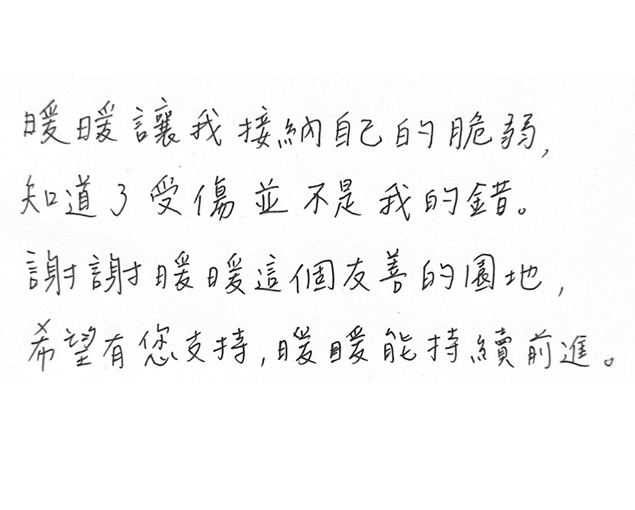 暖暖讓我接納自己的脆弱,
知道了受傷並不是我的錯。
謝謝暖暖這個友善的園地,
希望有您支持,暖暖能持續前進。